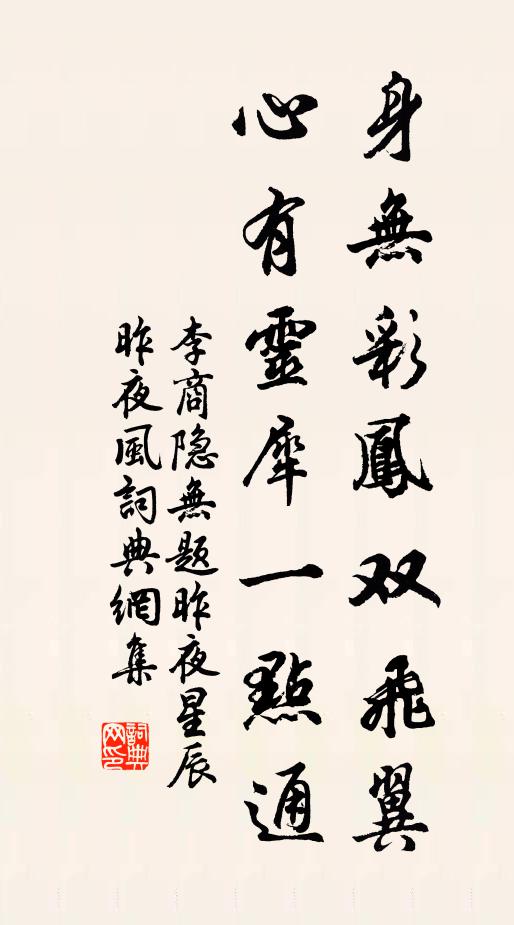 身無彩鳳双飛翼
心有靈犀一點通
李商隐無题昨夜星辰
昨夜風詞典網集
詞典网印